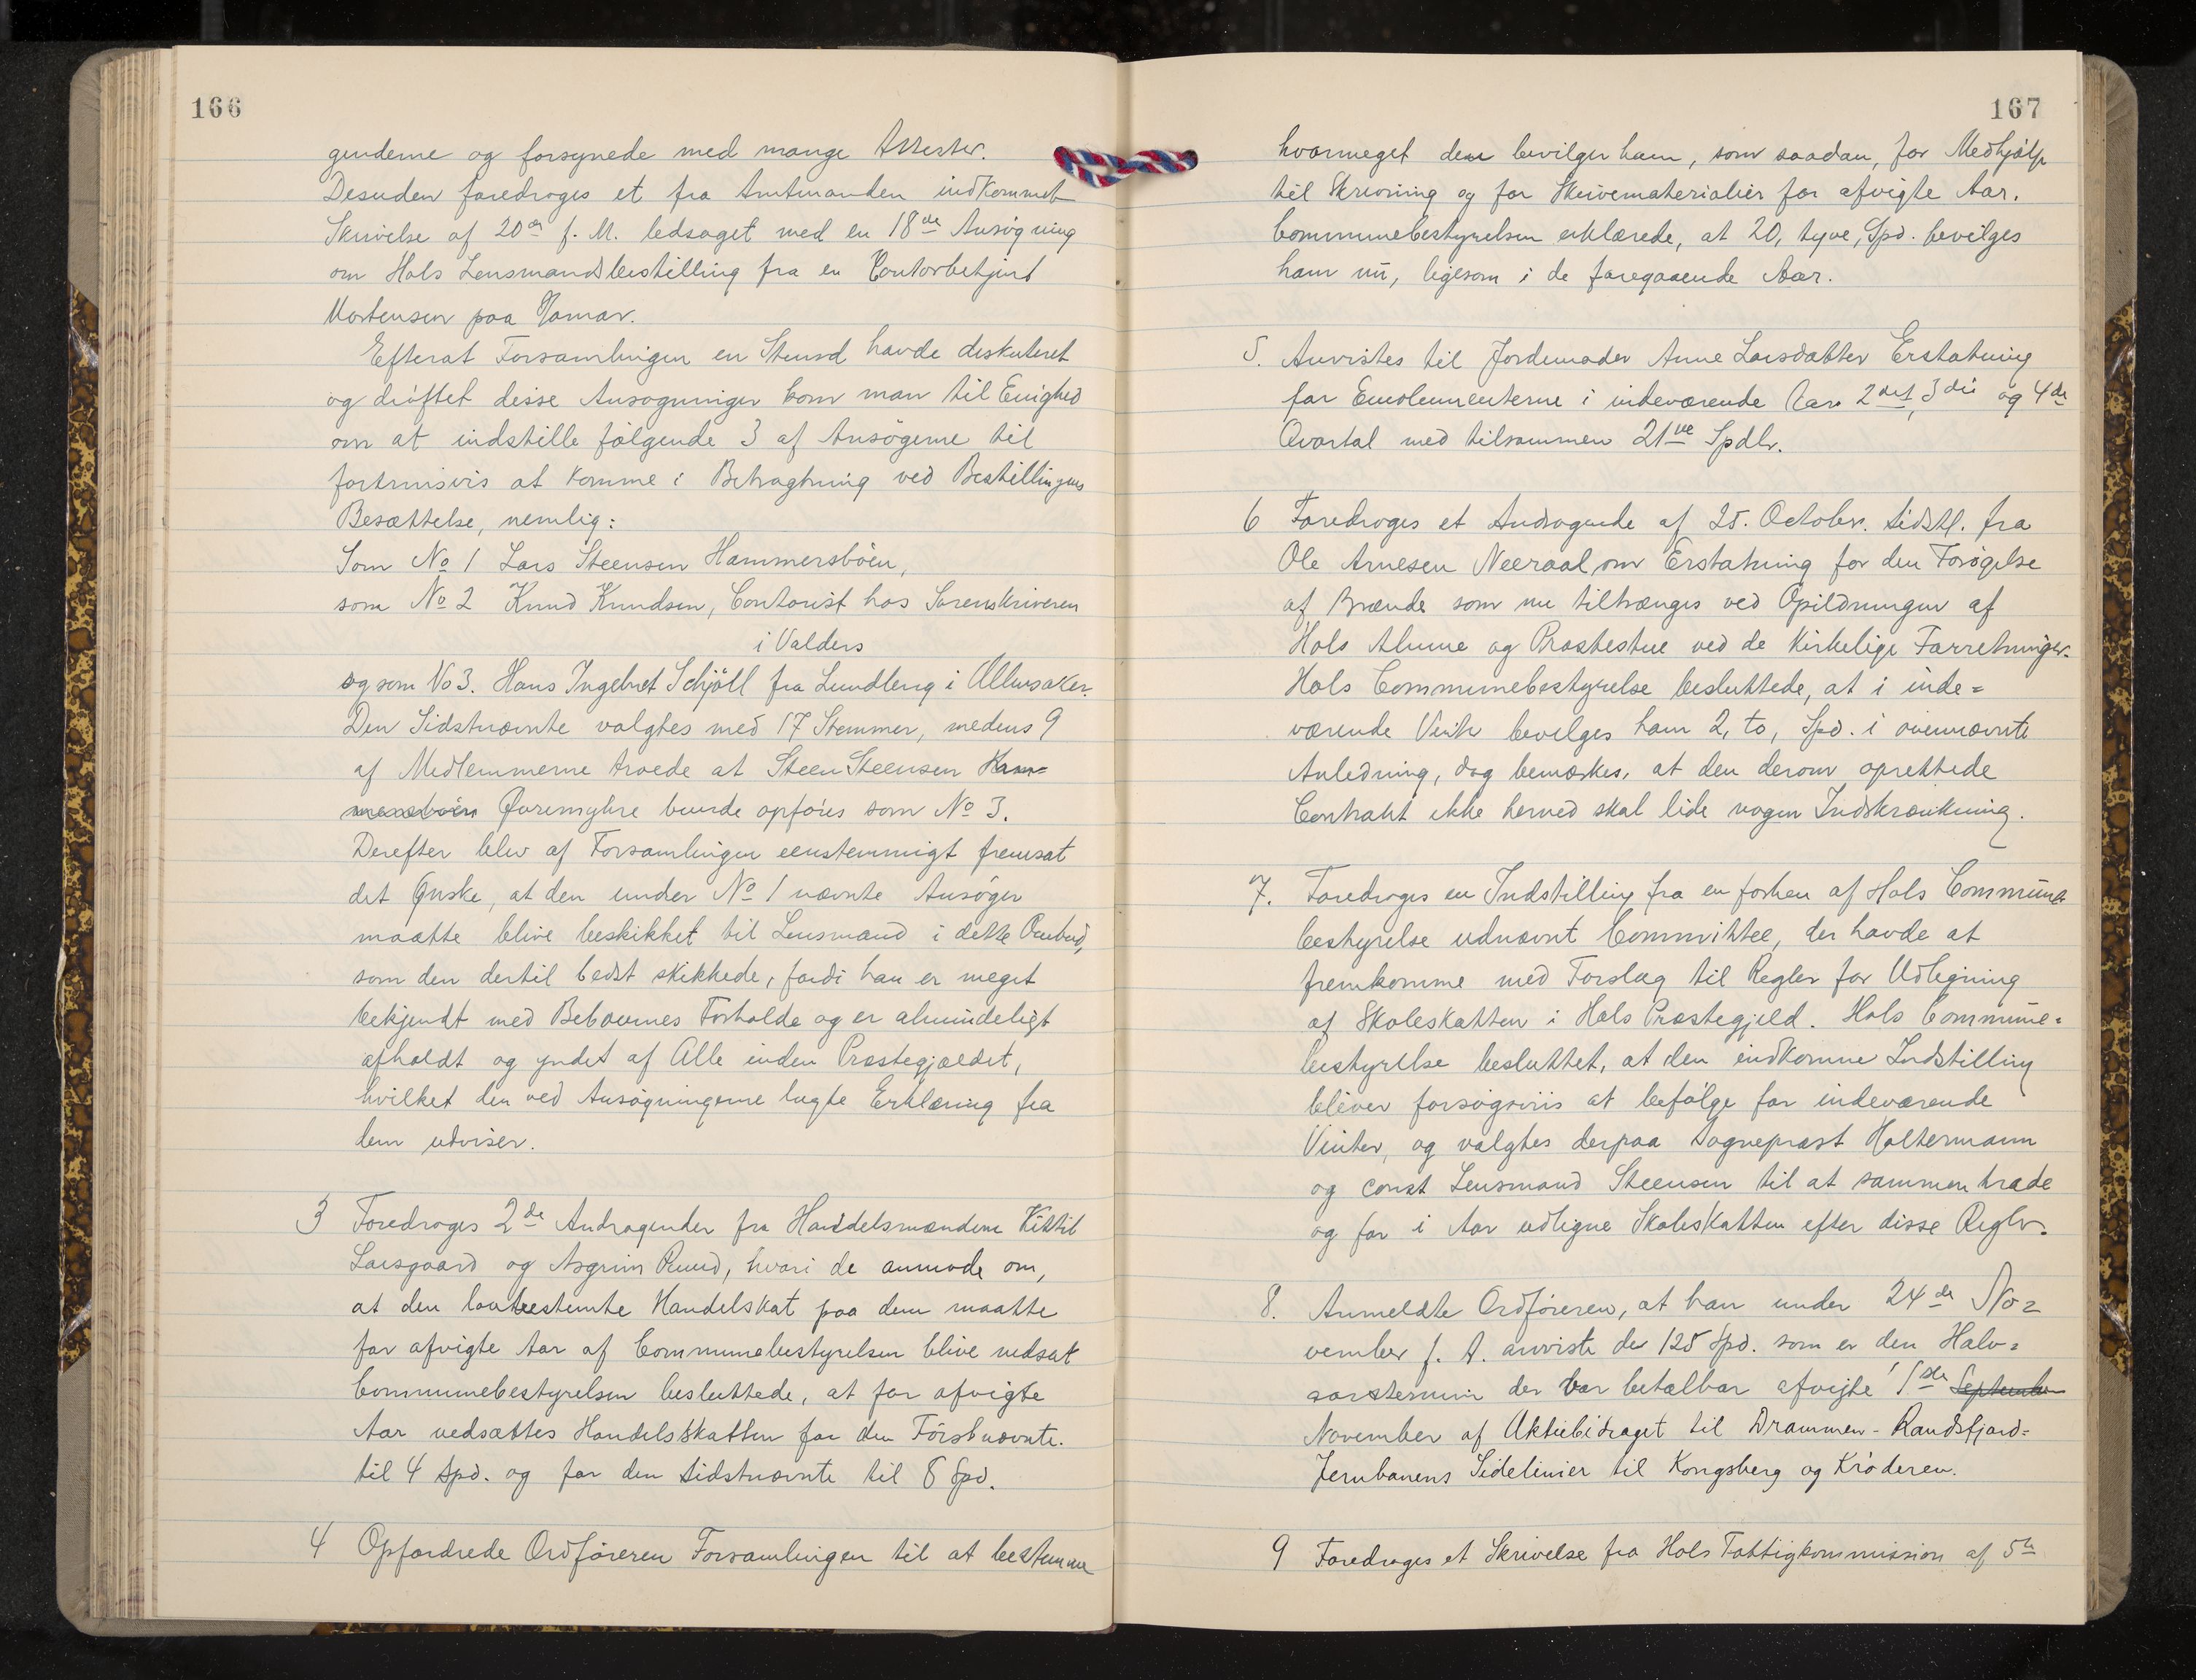 166
genderne og forsynede med mange Attester.
Desuden foredroges et fra Amtmanden indkommet
Skrivelse af 20de f. M. ledsaget med en 18de Ansøgning
om Hols Lensmandsbestilling fra en Contorbetjent
Mortensen paa Hamar.
Efterat Forsamlingen en Stund havde diskuteret
og drøftet disse Ansøgninger kom man til Enighed
om at indstille følgende 3 af Ansøgerne til
fortrinsvis at komme i Betragtning ved Bestillingens
Besættelse, nemlig:
Som No 1 Lars Steensen Hammersbøen,
som No 2 Knud Knudsen, Contorist hos Sorenskriveren
i Valders
og som No 3. Hans Ingebret Schjøll fra Lundteng i Ullensaker.
Den Sidstnævnte valgtes med 17 Stemmer, medens 9
af Medlemmerne troede at Steen Steensen Ham=
mersbøen Furemyhre burde opføres som No 3.
Derefter blev af Forsamlingen eenstemmigt fremsat
det Ønske, at den under No 1 nævnte Ansøger
maatte blive beskikket til Lensmand i dette Ombud,
som den dertil bedst skikkede, fordi han er meget
bekjendt med Beboernes Forholde og er almindeligt
afholdt og yndet af Alle inden Præstegjældet,
hvilket den ved Ansøgningerne lagte Erklæring fra
dem udviser.
3 Foredroges 2de Andragender fra Handelsmændene Kittil
Larsgaard og Asgrim Ruud, hvori de anmode om,
at den lovbestemte Handelskat paa dem maatte
for afvigte Aar af Communebestyrelsen blive nedsat
Communebestyrelsen besluttede, at for afvigte
Aar nedsættes Handelsskatten for den Førstnævnte
til 4 Spd. og for den sidstnævnte til 8 Spd.
4 Opfordrede Ordføreren Forsamlingen til at bestemme
167
hvormeget den bevilger ham, som saadan, for Medhjælp
til Skrivning og for Skrivematerialier for afvigte Aar.
Communebestyrelsen erklærede, at 20, tyve, Spd. bevilges
ham nu, ligesom i de foregaaende Aar.
5. Anvistes til Jordemoder Anne Larsdatter Erstatning
for Emolumenterne i indeværende Aars 2det, 3die og 4de
Qvartal med tilsammen 21ve Spdlr.
6 Foredroges et Andragende af 25. October. sidstl. fra
Ole Arnesen Neeraal, om Erstatning for den Forøgelse
af Brænde som nu tiltrænges ved Opildningen af
Hols Almue og Præstestue ved de kirkelige Forretninger.
Hols Communebestyrelse besluttede, at i inde=
værende Vinter bevilges ham 2, to, Spd. i ovennævnte
Anledning, dog bemærkes, at den derom oprettede
Contrakt ikke herved skal lide nogen Indskrænkning.
7. Foredroges en Indstilling fra en forhen af Hols Commune
bestyrelse udnævnt Committee, der havde at
fremkomme med Forslag til Regler for Udligning
af Skoleskatten i Hols Præstegjeld. Hols Commune=
bestyrelse besluttet, at den indkomne Indstilling
bliver forsøgsviis at befølge for indeværende
Vinter, og valgtes derpaa Sognepræst Holtermann
og const Lensmand Steensen til at sammentræde
og for i Aar udligne Skoleskatten efter disse Regler.
8. Anmeldte Ordføreren, at han under 24de No=
vember f. A. anviste de 125 Spd. som er den Halv=
aarstermin der var betalbar afvigte 1ste September
November af Aktiebidraget til Drammen-Randsfjord=
Jernbanens Sidelinier til Kongsberg og Krøderen.
9 Foredroges et Skrivelse fra Hols Fattigkommission af 5te